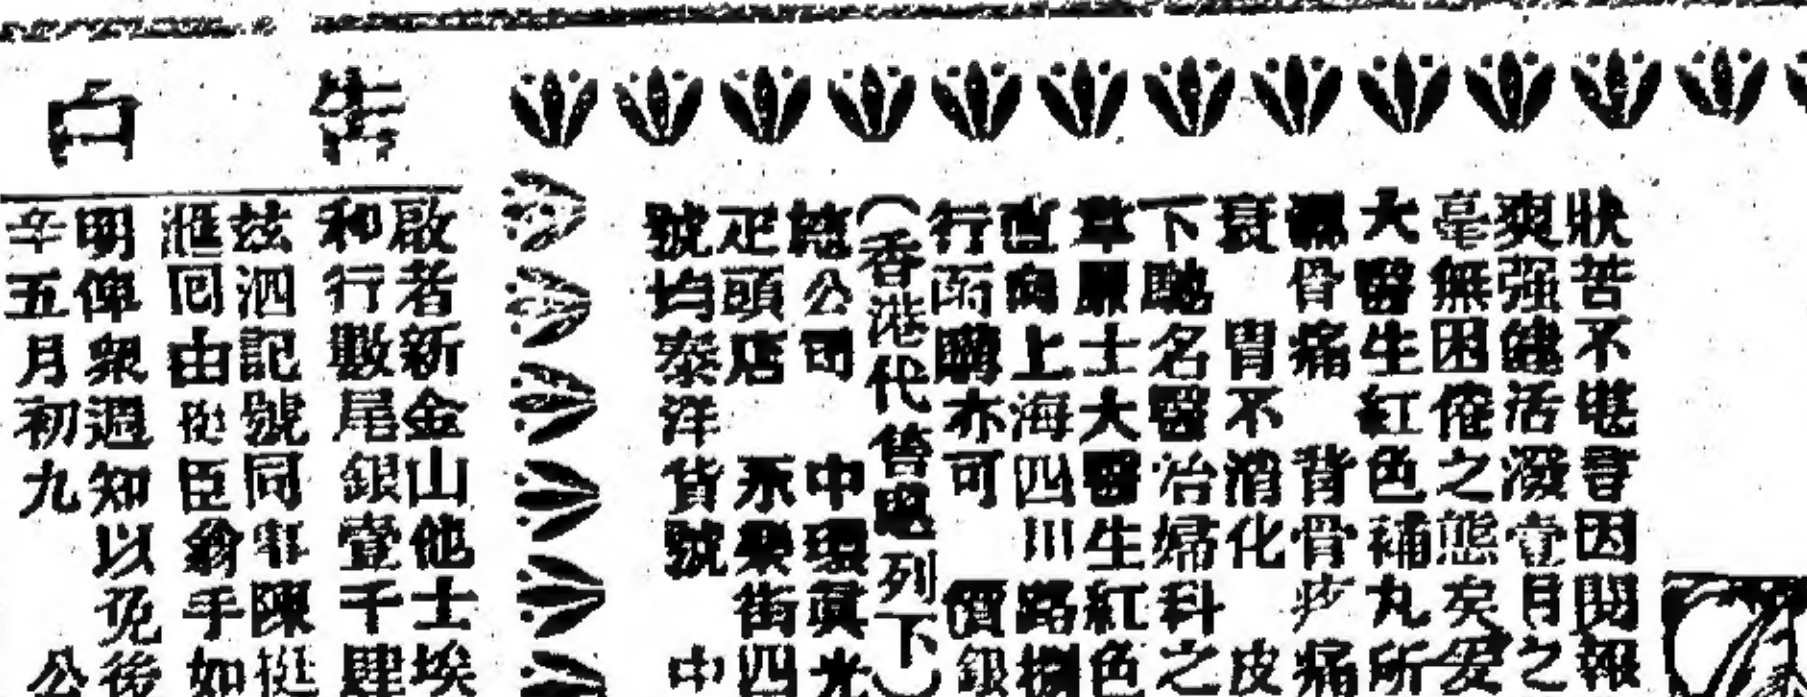 狀苦不堪尋因閱報
爽强健活潑壹月之
毫無困倦之態矣爰
大醫生紅色補丸所
骨痛 背骨痧痛
衰 胃不消化 皮
下馳名醫治婦科之
韋廉士大醫生紅色
直向上海四川路
行函購亦可 價銀
（香港代售處列下）
公司 中環眞光
疋頭店 永樂街四
號均泰洋貨號 中
告白
啟者新金山他士埃
和行數尾銀壹千肆
茲泗記號同事陳挺
滙回由挺臣翁手如
明俾衆週知以免後
辛五月初九 公